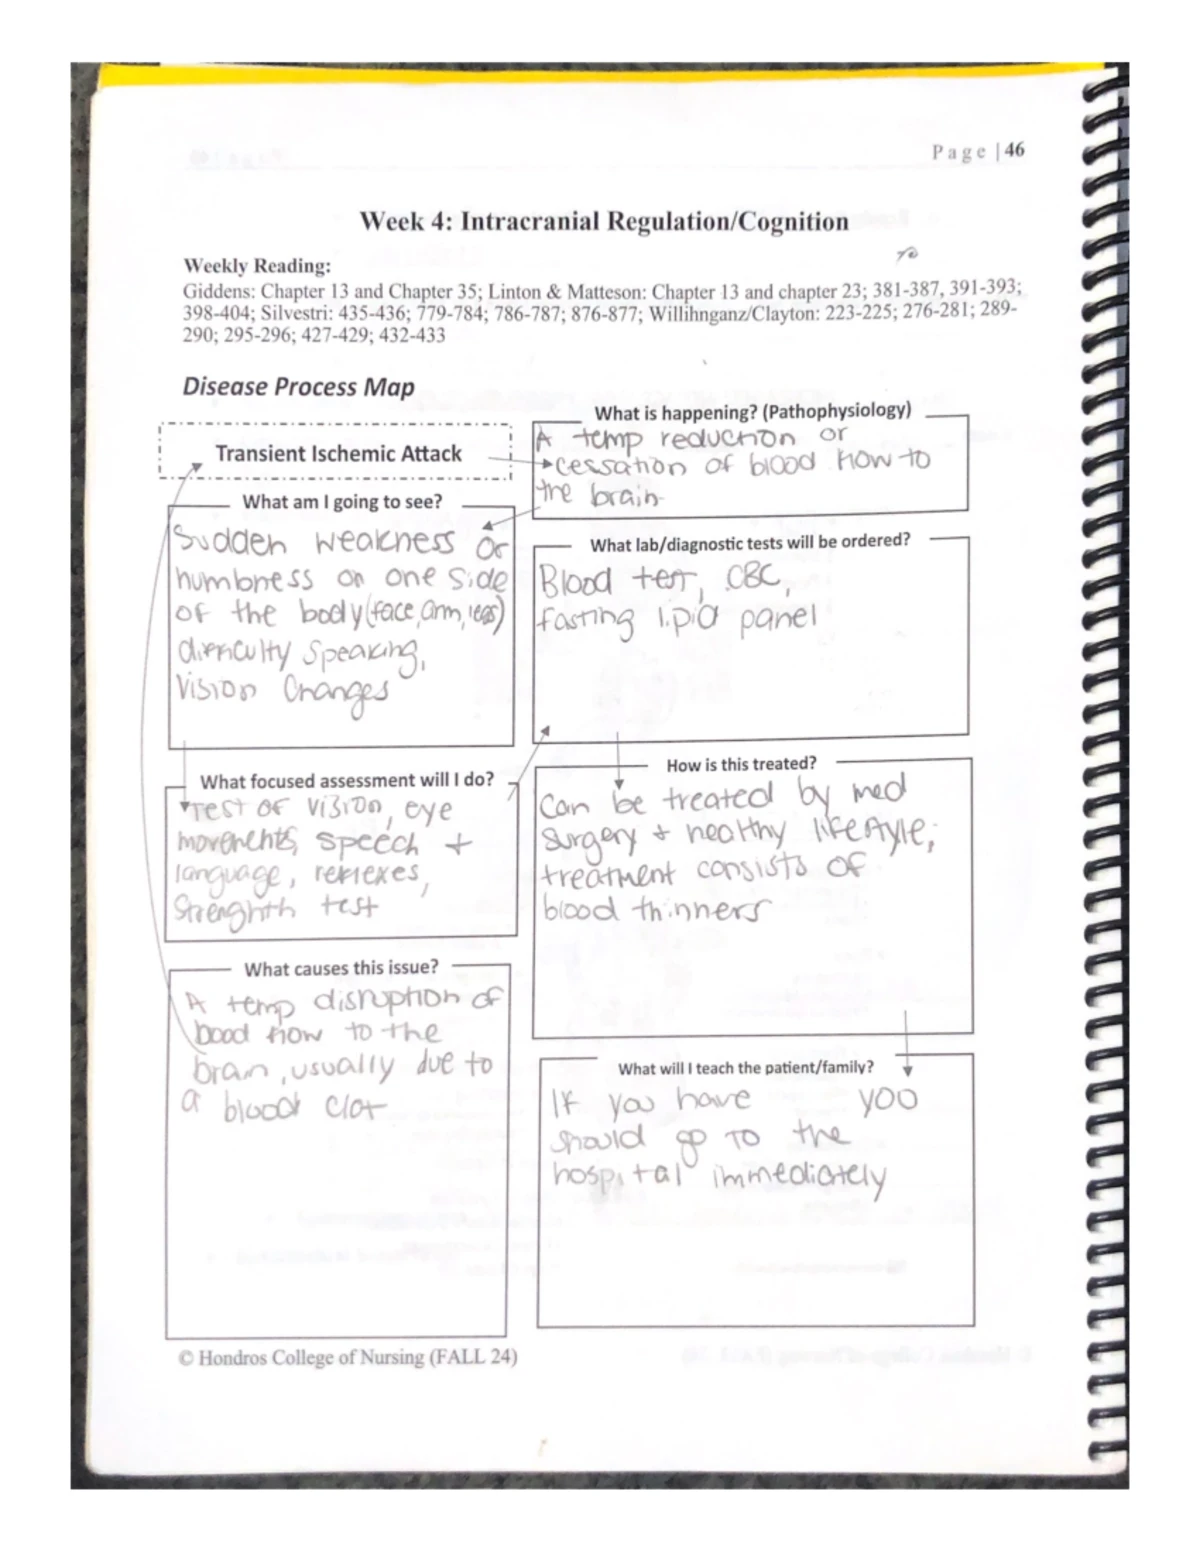 Page | 46
Week 4: Intracranial Regulation/Cognition
Weekly Reading:
Giddens: Chapter 13 and Chapter 35; Linton & Matteson: Chapter 13 and chapter 23; 381-387, 391-393;
398-404; Silvestri: 435-436; 779-784; 786-787; 876-877; Willihnganz/Clayton: 223-225; 276-281; 289-
290; 295-296; 427-429; 432-433
Disease Process Map
Transient Ischemic Attack
What is happening? (Pathophysiology)
A temp reduction or
cessation of blood flow to
the brain
What am I going to see?
Sudden weakness or
numbness on one side
of the body (face, arm, legs)
difficulty speaking,
vision changes
What lab/diagnostic tests will be ordered?
Blood test, CBC,
fasting lipid panel
What focused assessment will I do?
Test of vision, eye
movements, speech +
language, reflexes,
Strenghth test
How is this treated?
Can be treated by med
surgery + healthy lifestyle;
treatment consists of
blood thinners
What causes this issue?
A temp disruption of
blood flow to the
brain, usually due to
a blood clot
What will I teach the patient/family?
If you have you
should go to the
hospital immediately
© Hondros College of Nursing (FALL 24)